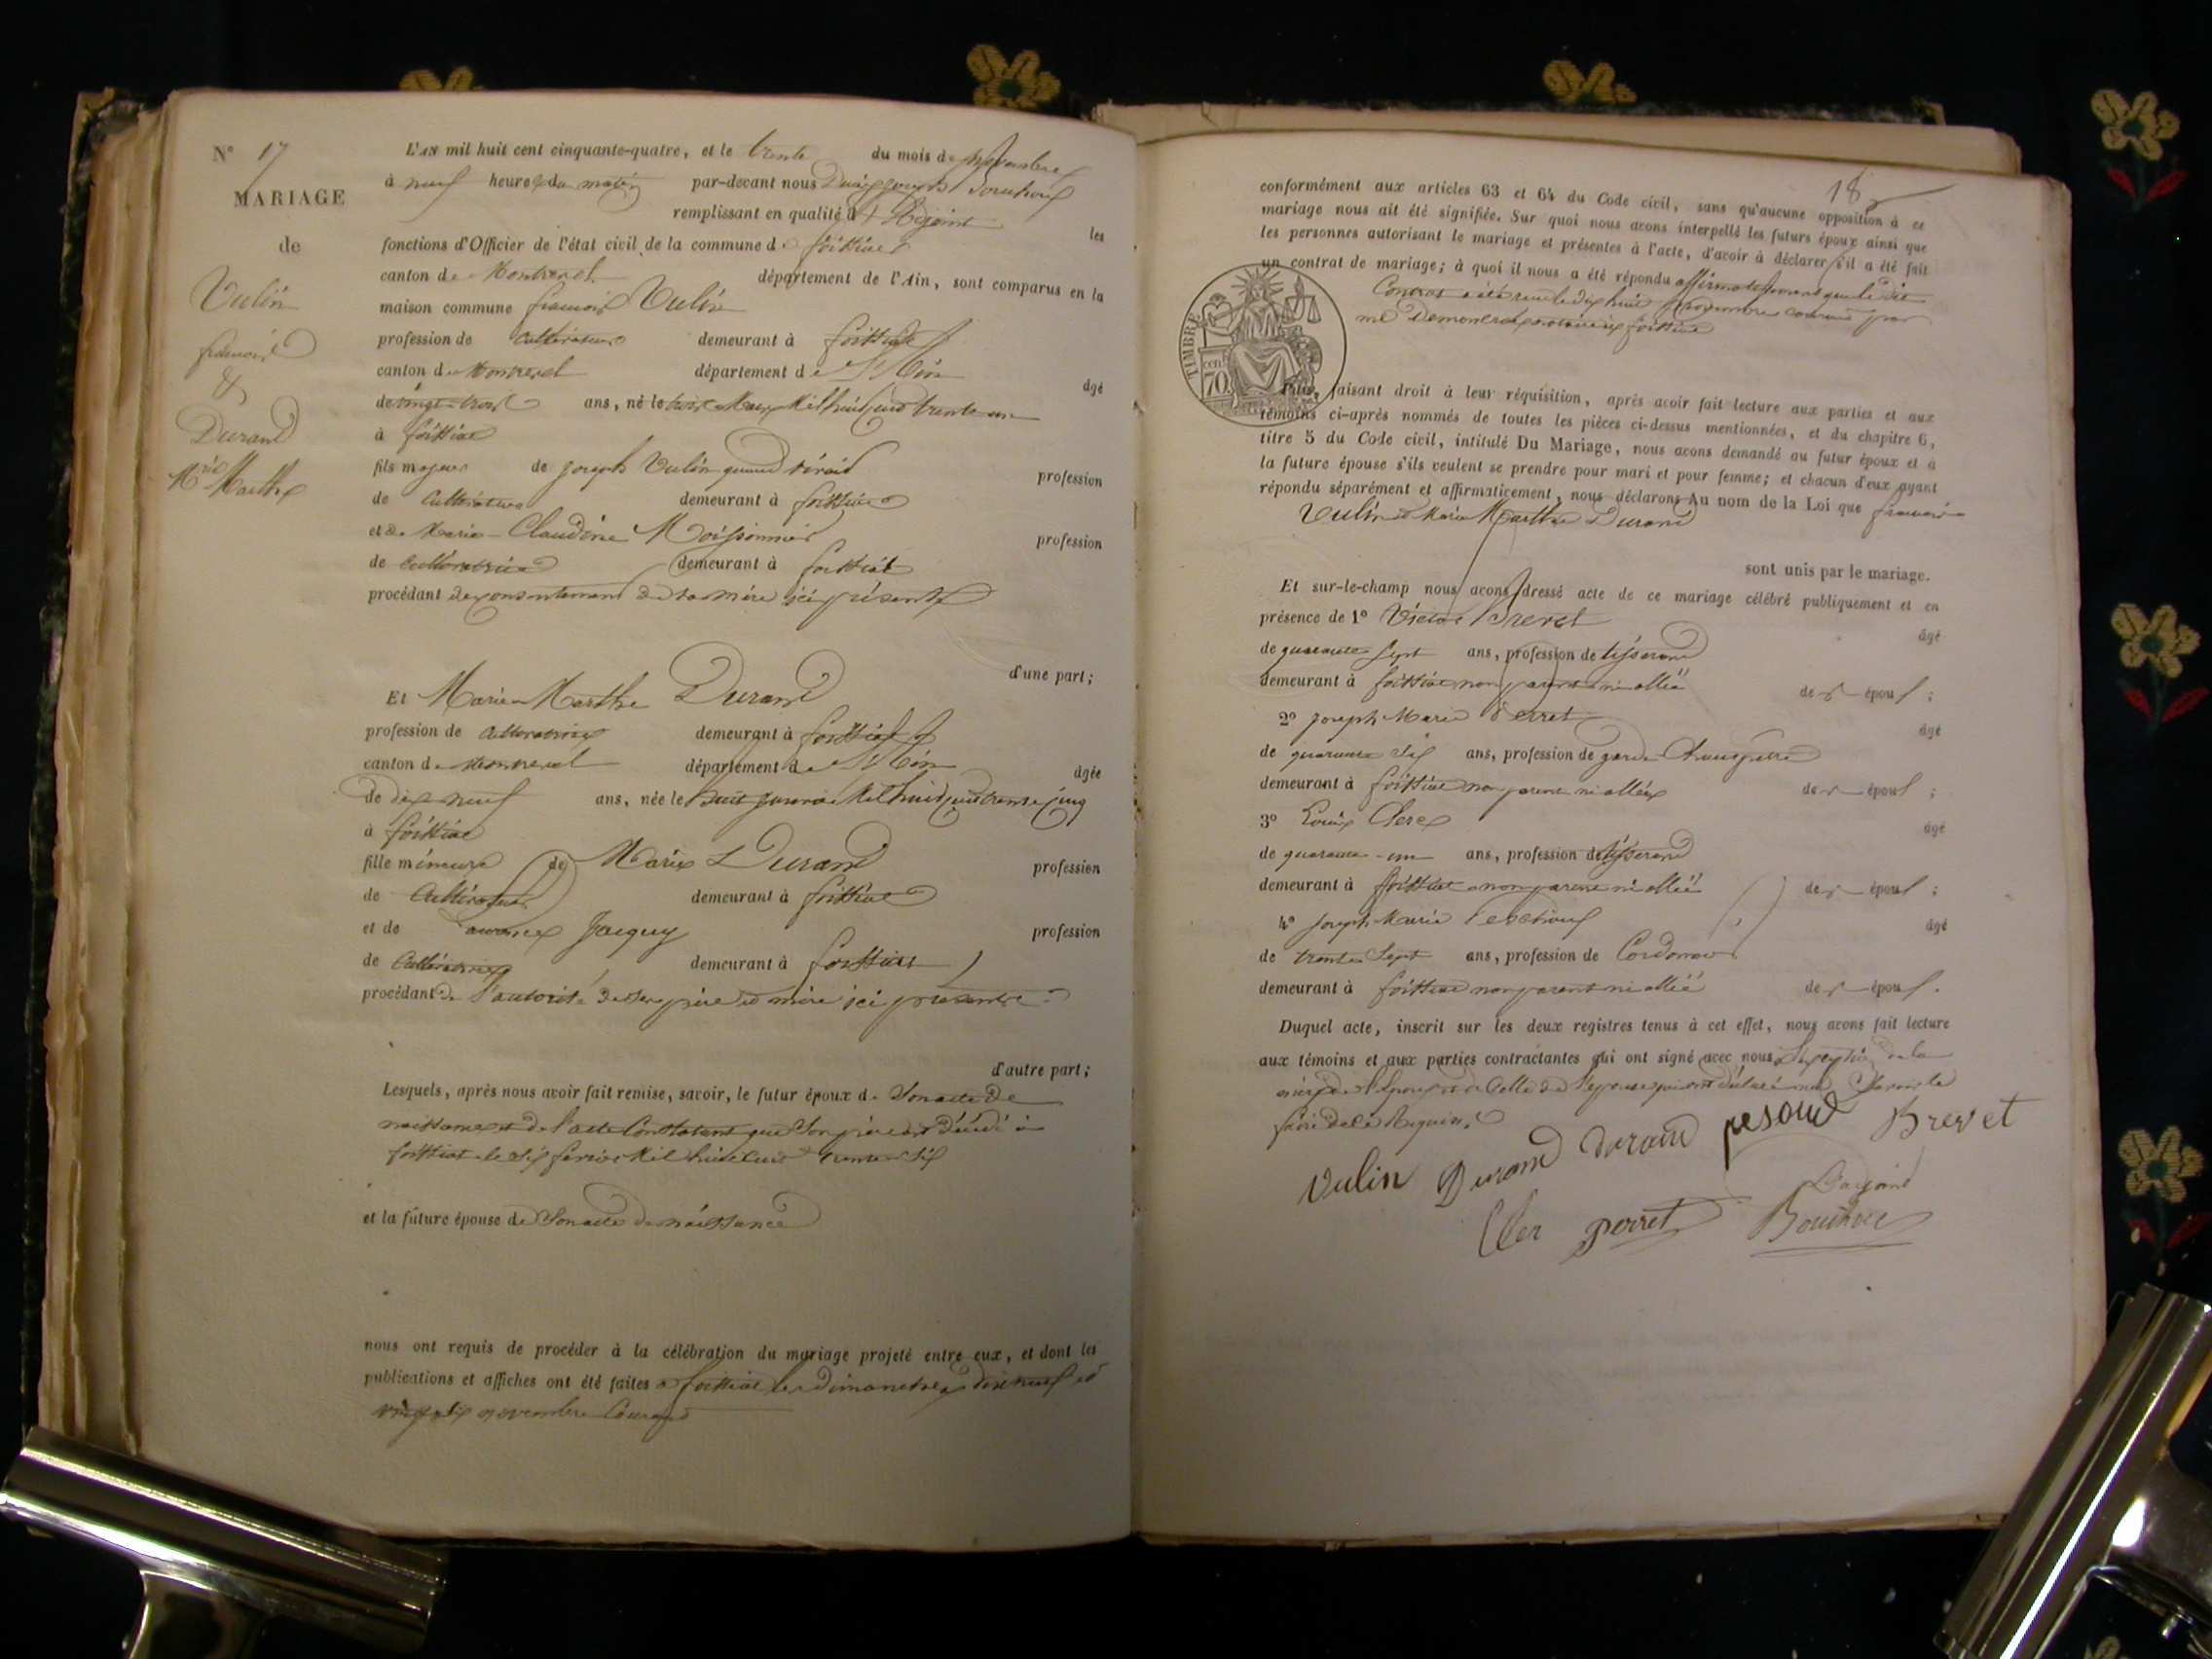 N° 17
MARIAGE
de
Vulin
françois
&
Durand
Mrie Marthe
L'AN mil huit cent cinquante-quatre, et le trente du mois de Novembre
à neuf heures du matin par-devant nous
remplissant en qualité d' Adjoint les
fonctions d'Officier de l'état civil de la commune de foissiat
canton de Montrevel département de l'Ain, sont comparus en la
maison commune françois Vulin
profession de cultivateur demeurant à foissiat
canton de Montrevel département de l'Ain âgé
de vingt-trois ans, né le trois Mars Mil huit cent trente un
à foissiat
fils majeur de joseph Vulin quand vivait profession
de cultivateur demeurant à foissiat
et de Marie-Claudine Moissonnier profession
de cultivatrice demeurant à foissiat
procédant du consentement de sa mère ici présente
d'une part;
Et Marie Marthe Durand
profession de cultivatrice demeurant à foissiat
canton de Montrevel département de l'Ain âgée
de dix neuf ans, née le huit janvier Mil huit cent trente cinq
à foissiat
fille mineure de Marie Durand profession
de Cultivateur demeurant à foissiat
et de Laurence Jacquy profession
de Cultivatrice demeurant à foissiat
procédant de l'autorité de ses père et mère ici présents
d'autre part;
Lesquels, après nous avoir fait remise, savoir, le futur époux de Son acte de
naissance et de l'acte Constatant que Son père est décédé à
foissiat le six février Mil huit cent trente six
et la future épouse de Son acte de naissance
nous ont requis de procéder à la célébration du mariage projeté entre eux, et dont les
publications et affiches ont été faites à foissiat les dimanches dix neuf et
vingt six novembre Courant
18
conformément aux articles 63 et 64 du Code civil, sans qu'aucune opposition à ce
mariage nous ait été signifiée. Sur quoi nous avons interpellé les futurs époux ainsi que
les personnes autorisant le mariage et présentes à l'acte, d'avoir à déclarer s'il a été fait
un contrat de mariage; à quoi il nous a été répondu affirmativement que le dit
Contrat a été reçu le dix huit Novembre courant par
me notaire à foissiat
TIMBRE
cen.
70
Puis, faisant droit à leur réquisition, après avoir fait lecture aux parties et aux
témoins ci-après nommés de toutes les pièces ci-dessus mentionnées, et du chapitre 6,
titre 5 du Code civil, intitulé Du Mariage, nous avons demandé au futur époux et à
la future épouse s'ils veulent se prendre pour mari et pour femme; et chacun d'eux ayant
répondu séparément et affirmativement, nous déclarons Au nom de la Loi que françois
Vulin et Marie Marthe Durand
sont unis par le mariage.
Et sur-le-champ nous avons dressé acte de ce mariage célébré publiquement et en
présence de 1° Victor Brevet âgé
de quarante Sept ans, profession de tisserand
demeurant à foissiat non parent ni allié des époux;
2° joseph Marie Perret âgé
de quarante Six ans, profession de garde Champêtre
demeurant à foissiat non parent ni allié des époux;
3° Louis Clerc âgé
de quarante-un ans, profession de tisserand
demeurant à foissiat non parent ni allié des époux;
4° joseph Marie âgé
de trente Sept ans, profession de Cordonnier
demeurant à foissiat non parent ni allié des époux.
Duquel acte, inscrit sur les deux registres tenus à cet effet, nous avons fait lecture
aux témoins et aux parties contractantes qui ont signé avec nous à l'exception de la
mère de l'époux et de Celle de l'épouse qui ont déclaré ne Savoir le
faire de ce Requis.
Vulin Durand durand pesoud Brevet
L'adjoint
Cler perret Bouchoux